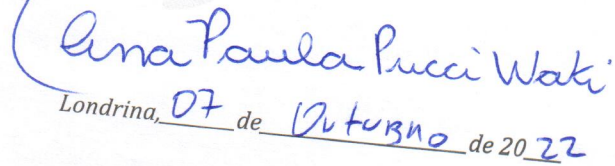 Ana Paula Pucci Waki
Londrina, 07 de Outubro de 2022